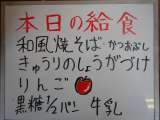 本日の給食
和風焼そば かつおぶし
きゅうりのしょうがづけ
りんご
黒糖1/2パン 牛乳